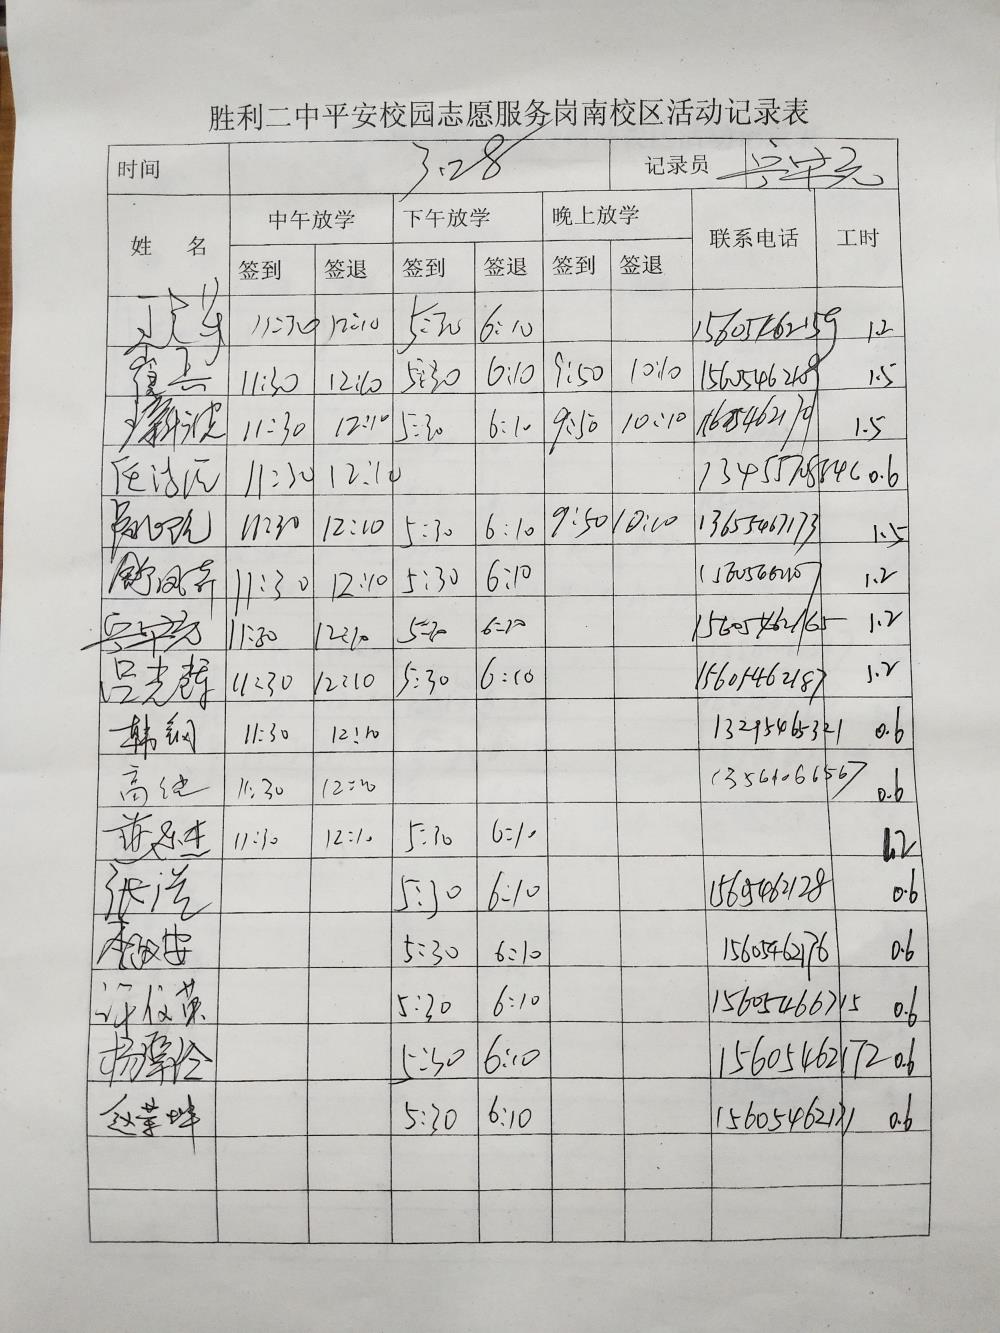 胜利二中平安校园志愿服务岗南校区活动记录表
时间 3.28 记录员
姓 名 中午放学 下午放学 晚上放学 联系电话 工时
签到 签退 签到 签退 签到 签退
11:30 12:10 5:30 6:10 15605462159 1.2
11:30 12:10 5:30 6:10 9:50 10:10 1.5
11:30 12:10 5:30 6:10 9:50 10:10 1.5
11:30 12:10 0.6
11:30 12:10 5:30 6:10 9:50 10:10 13655467173 1.5
11:30 12:10 5:30 6:10 1.2
11:30 12:10 5:30 6:10 15605462165 1.2
吕光 11:30 12:10 5:30 6:10 15605462187 1.2
韩钢 11:30 12:10 13295465321 0.6
高 11:30 12:10 13561066567 0.6
11:30 12:10 5:30 6:10 1.2
张 5:30 6:10 0.6
李 安 5:30 6:10 15605462176 0.6
许 英 5:30 6:10 15605466715 0.6
杨翠玲 5:30 6:10 15605462172 0.6
赵 5:30 6:10 15605462131 0.6